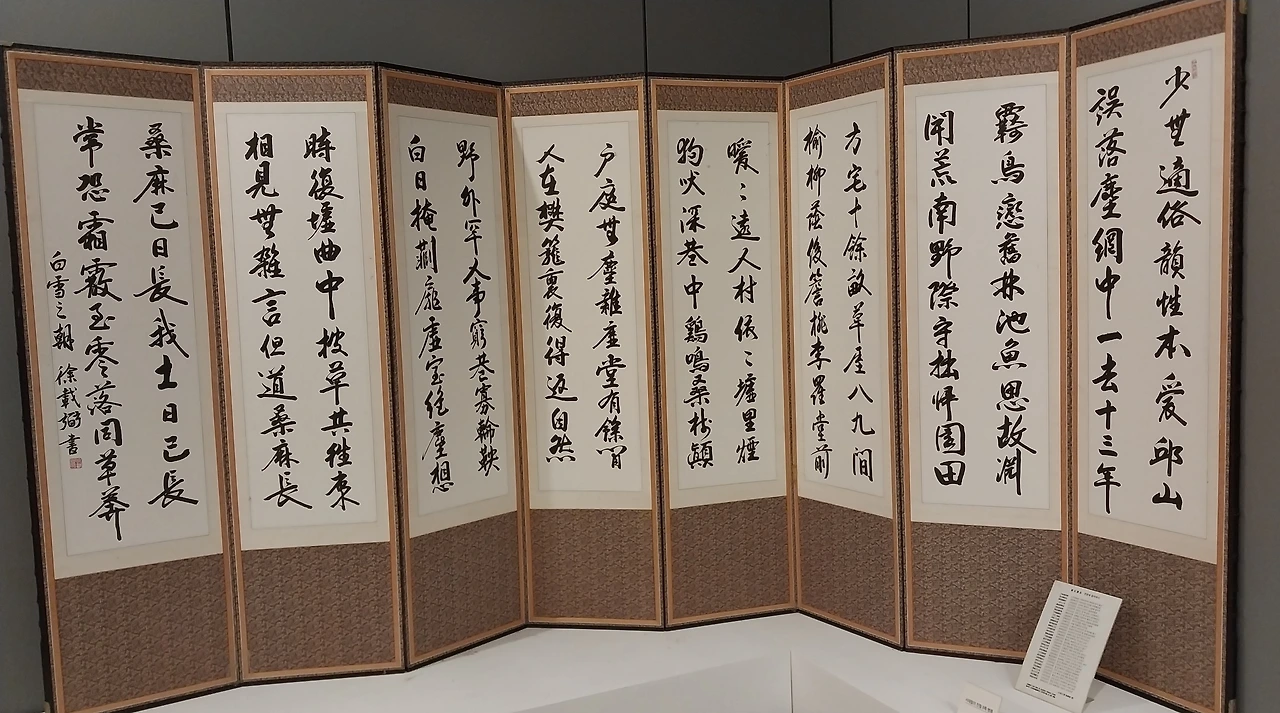 少無適俗韻性本愛邱山
誤落塵網中一去十三年
羈鳥戀舊林池魚思故淵
開荒南野際守拙歸園田
方宅十餘畝草屋八九間
榆柳蔭後簷桃李羅堂前
曖〻遠人村依〻墟里煙
狗吠深巷中鷄鳴桑樹顚
戶庭無塵雜虛堂有餘閒
久在樊籠裏復得返自然
野外罕人事窮巷寡輪鞅
白日掩荊扉虛室絕塵想
時復墟曲中披草共往來
相見無雜言但道桑麻長
桑麻已日長我土日已長
常恐霜霰至零落同草莽
白雪之朝 徐載弼書